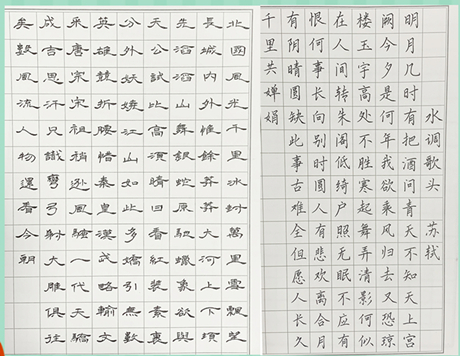 北國風光千里冰封萬里雪飄望
長城內外惟餘莽莽大河上下頓
失滔滔山舞銀蛇原馳蠟象欲與
天公試比高須晴日看紅裝素裹
分外妖嬈江山如此多嬌引無數
英雄競折腰惜秦皇漢武略輸文
采唐宗宋祖稍遜風騷一代天驕
成吉思汗只識彎弓射大雕俱往
矣數風流人物還看今朝
水调歌头 苏轼
明月几时有把酒问青天不知天上宫
阙今夕是何年我欲乘风归去又恐琼
楼玉宇高处不胜寒起舞弄清影何似
在人间转朱阁低绮户照无眠不应有
恨何事长向别时圆人有悲欢离合月
有阴晴圆缺此事古难全但愿人长久
千里共婵娟